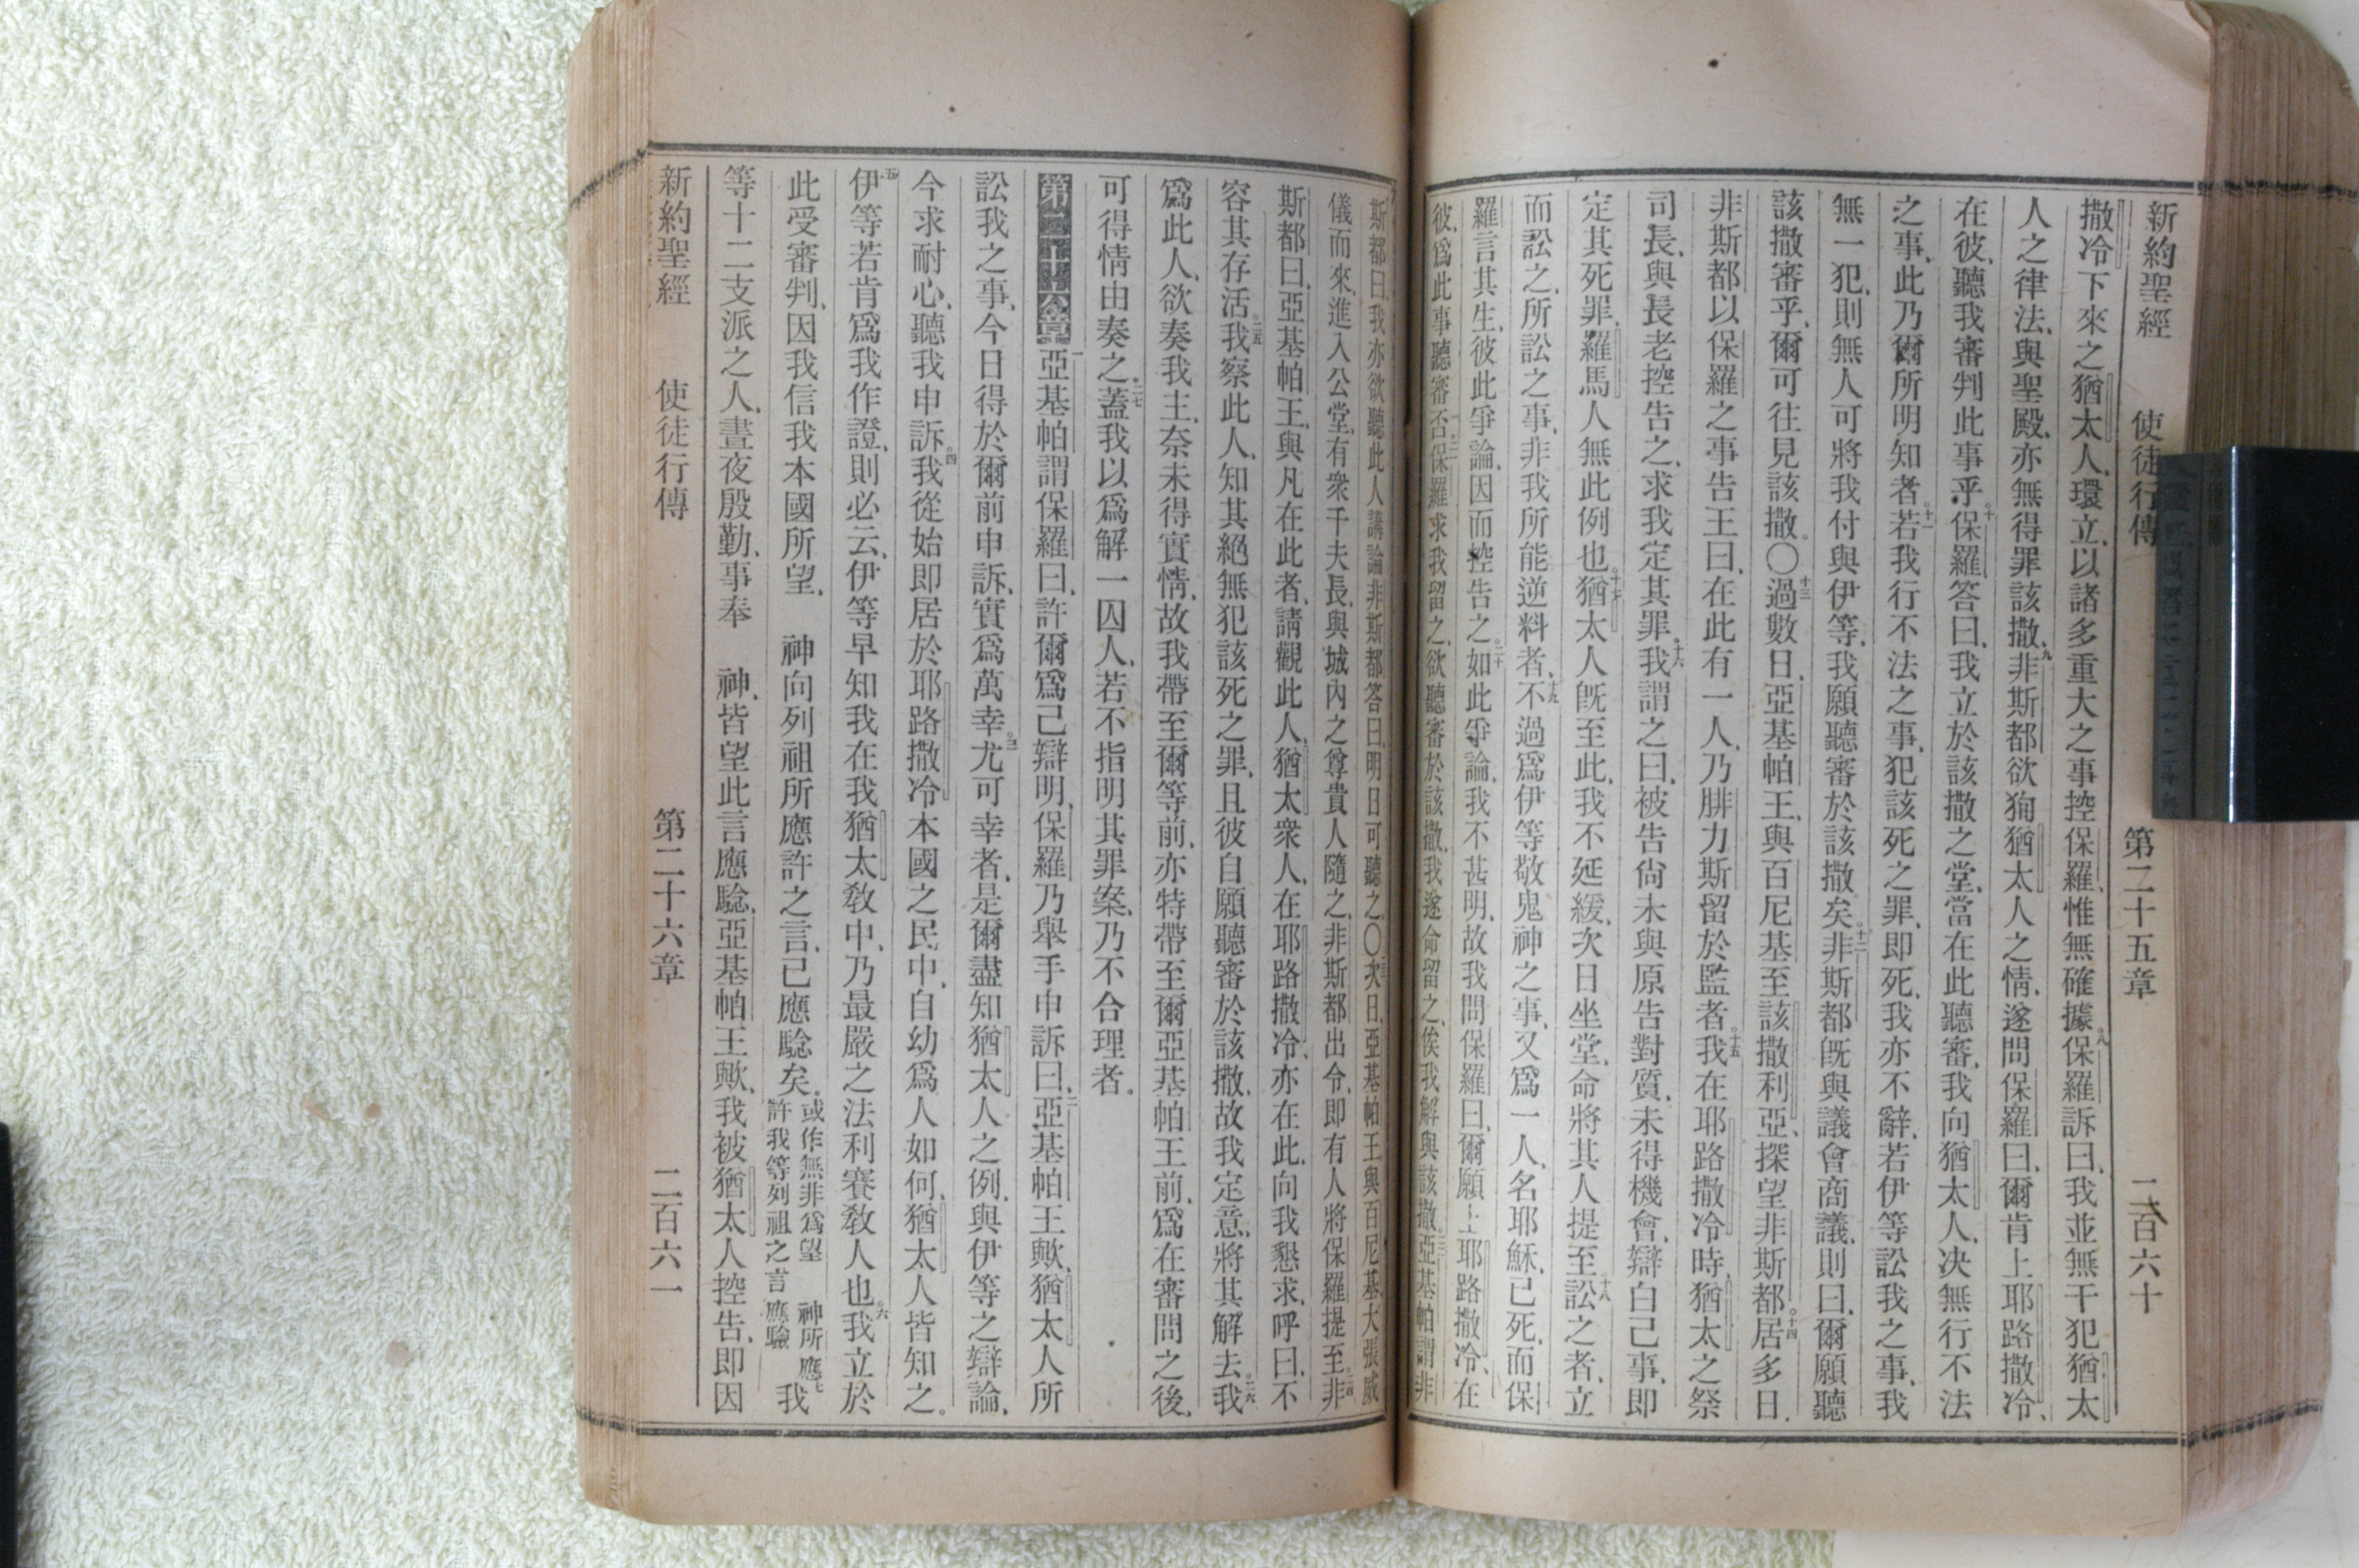 新約聖經 使徒行傳 第二十五章 二百六十
撒冷下來之猶太人、環立、以諸多重大之事控保羅、惟無確據。八保羅訴曰、我並無干犯猶太
人之律法、與聖殿、亦無得罪該撒、九非斯都欲狥猶太人之情、遂問保羅曰、爾肯上耶路撒冷、
在彼、聽我審判此事乎。十保羅答曰、我立於該撒之堂、當在此聽審、我向猶太人、决無行不法
之事、此乃爾所明知者。十一若我行不法之事、犯該死之罪、即死、我亦不辭、若伊等訟我之事、我
無一犯、則無人可將我付與伊等、我願聽審於該撒矣。十二非斯都旣與議會商議、則曰、爾願聽
該撒審乎、爾可往見該撒。〇十三過數日、亞基帕王、與百尼基至該撒利亞、探望非斯都。十四居多日、
非斯都以保羅之事告王曰、在此有一人、乃腓力斯留於監者。十五我在耶路撒冷時、猶太之祭
司長、與長老控告之、求我定其罪。十六我謂之曰、被告尙未與原告對質、未得機會、辯白己事、即
定其死罪、羅馬人無此例也。十七猶太人旣至此、我不延緩、次日坐堂、命將其人提至。十八訟之者、立
而訟之、所訟之事、非我所能逆料者、十九不過爲伊等敬鬼神之事、又爲一人、名耶穌、已死、而保
羅言其生、彼此爭論、因而控告之。二十如此爭論、我不甚明、故我問保羅曰、爾願上耶路撒冷、在
彼、爲此事聽審否。二一保羅求我留之、欲聽審於該撒、我遂命留之、俟我解與該撒。二二亞基帕謂非
斯都曰、我亦欲聽此人講論、非斯都答曰、明日可聽之。〇二三次日、亞基帕王與百尼基大張威
儀而來、進入公堂、有衆千夫長、與城內之尊貴人隨之、非斯都出令、即有人將保羅提至。二四非
斯都曰、亞基帕王、與凡在此者、請觀此人、猶太衆人、在耶路撒冷、亦在此、向我懇求、呼曰、不
容其存活。二五我察此人、知其絕無犯該死之罪、且彼自願聽審於該撒、故我定意、將其解去。二六我
爲此人、欲奏我主、奈未得實情、故我帶至爾等前、亦特帶至爾亞基帕王前、爲在審問之後、
可得情由奏之。二七蓋我以爲解一囚人、若不指明其罪案、乃不合理者。
第二十六章 一亞基帕謂保羅曰、許爾爲己辯明、保羅乃舉手申訴曰、二亞基帕王歟、猶太人所
訟我之事、今日得於爾前申訴、實爲萬幸。三尤可幸者、是爾盡知猶太人之例、與伊等之辯論、
今求耐心、聽我申訴。四我從始即居於耶路撒冷本國之民中、自幼爲人如何、猶太人皆知之。
五伊等若肯爲我作證、則必云、伊等早知我在我猶太敎中、乃最嚴之法利賽敎人也。六我立於
此受審判、因我信我本國所望、 神向列祖所應許之言、已應驗矣。或作無非爲望 神所應許我等列祖之言應驗 七我
等十二支派之人、晝夜殷勤、事奉 神、皆望此言應騐、亞基帕王歟、我被猶太人控告、即因
新約聖經 使徒行傳 第二十六章 二百六一